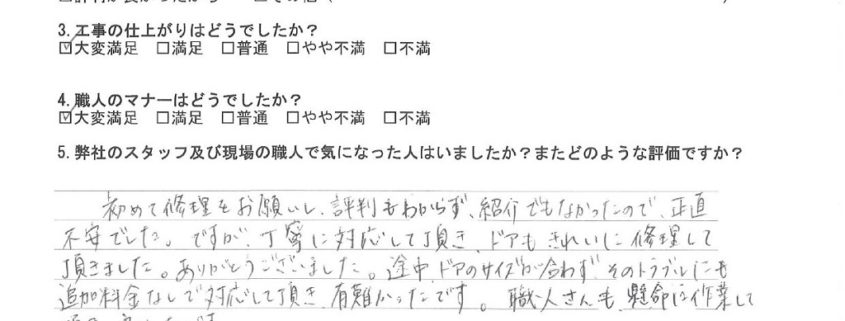 3.工事の仕上がりはどうでしたか？
☑大変満足　□満足　□普通　□やや不満　□不満
4.職人のマナーはどうでしたか？
☑大変満足　□満足　□普通　□やや不満　□不満
5.弊社のスタッフ及び現場の職人で気になった人はいましたか？またどのような評価ですか？
初めて修理をお願いし、評判もわからず、紹介でもなかったので、正直
不安でした。ですが、丁寧に対応して頂き、ドアもきれいに修理して
頂きました。ありがとうございました。途中、ドアのサイズが合わず そのトラブルにも
追加料金なしで対応して頂き、有難かったです。職人さんも、懸命に作業して